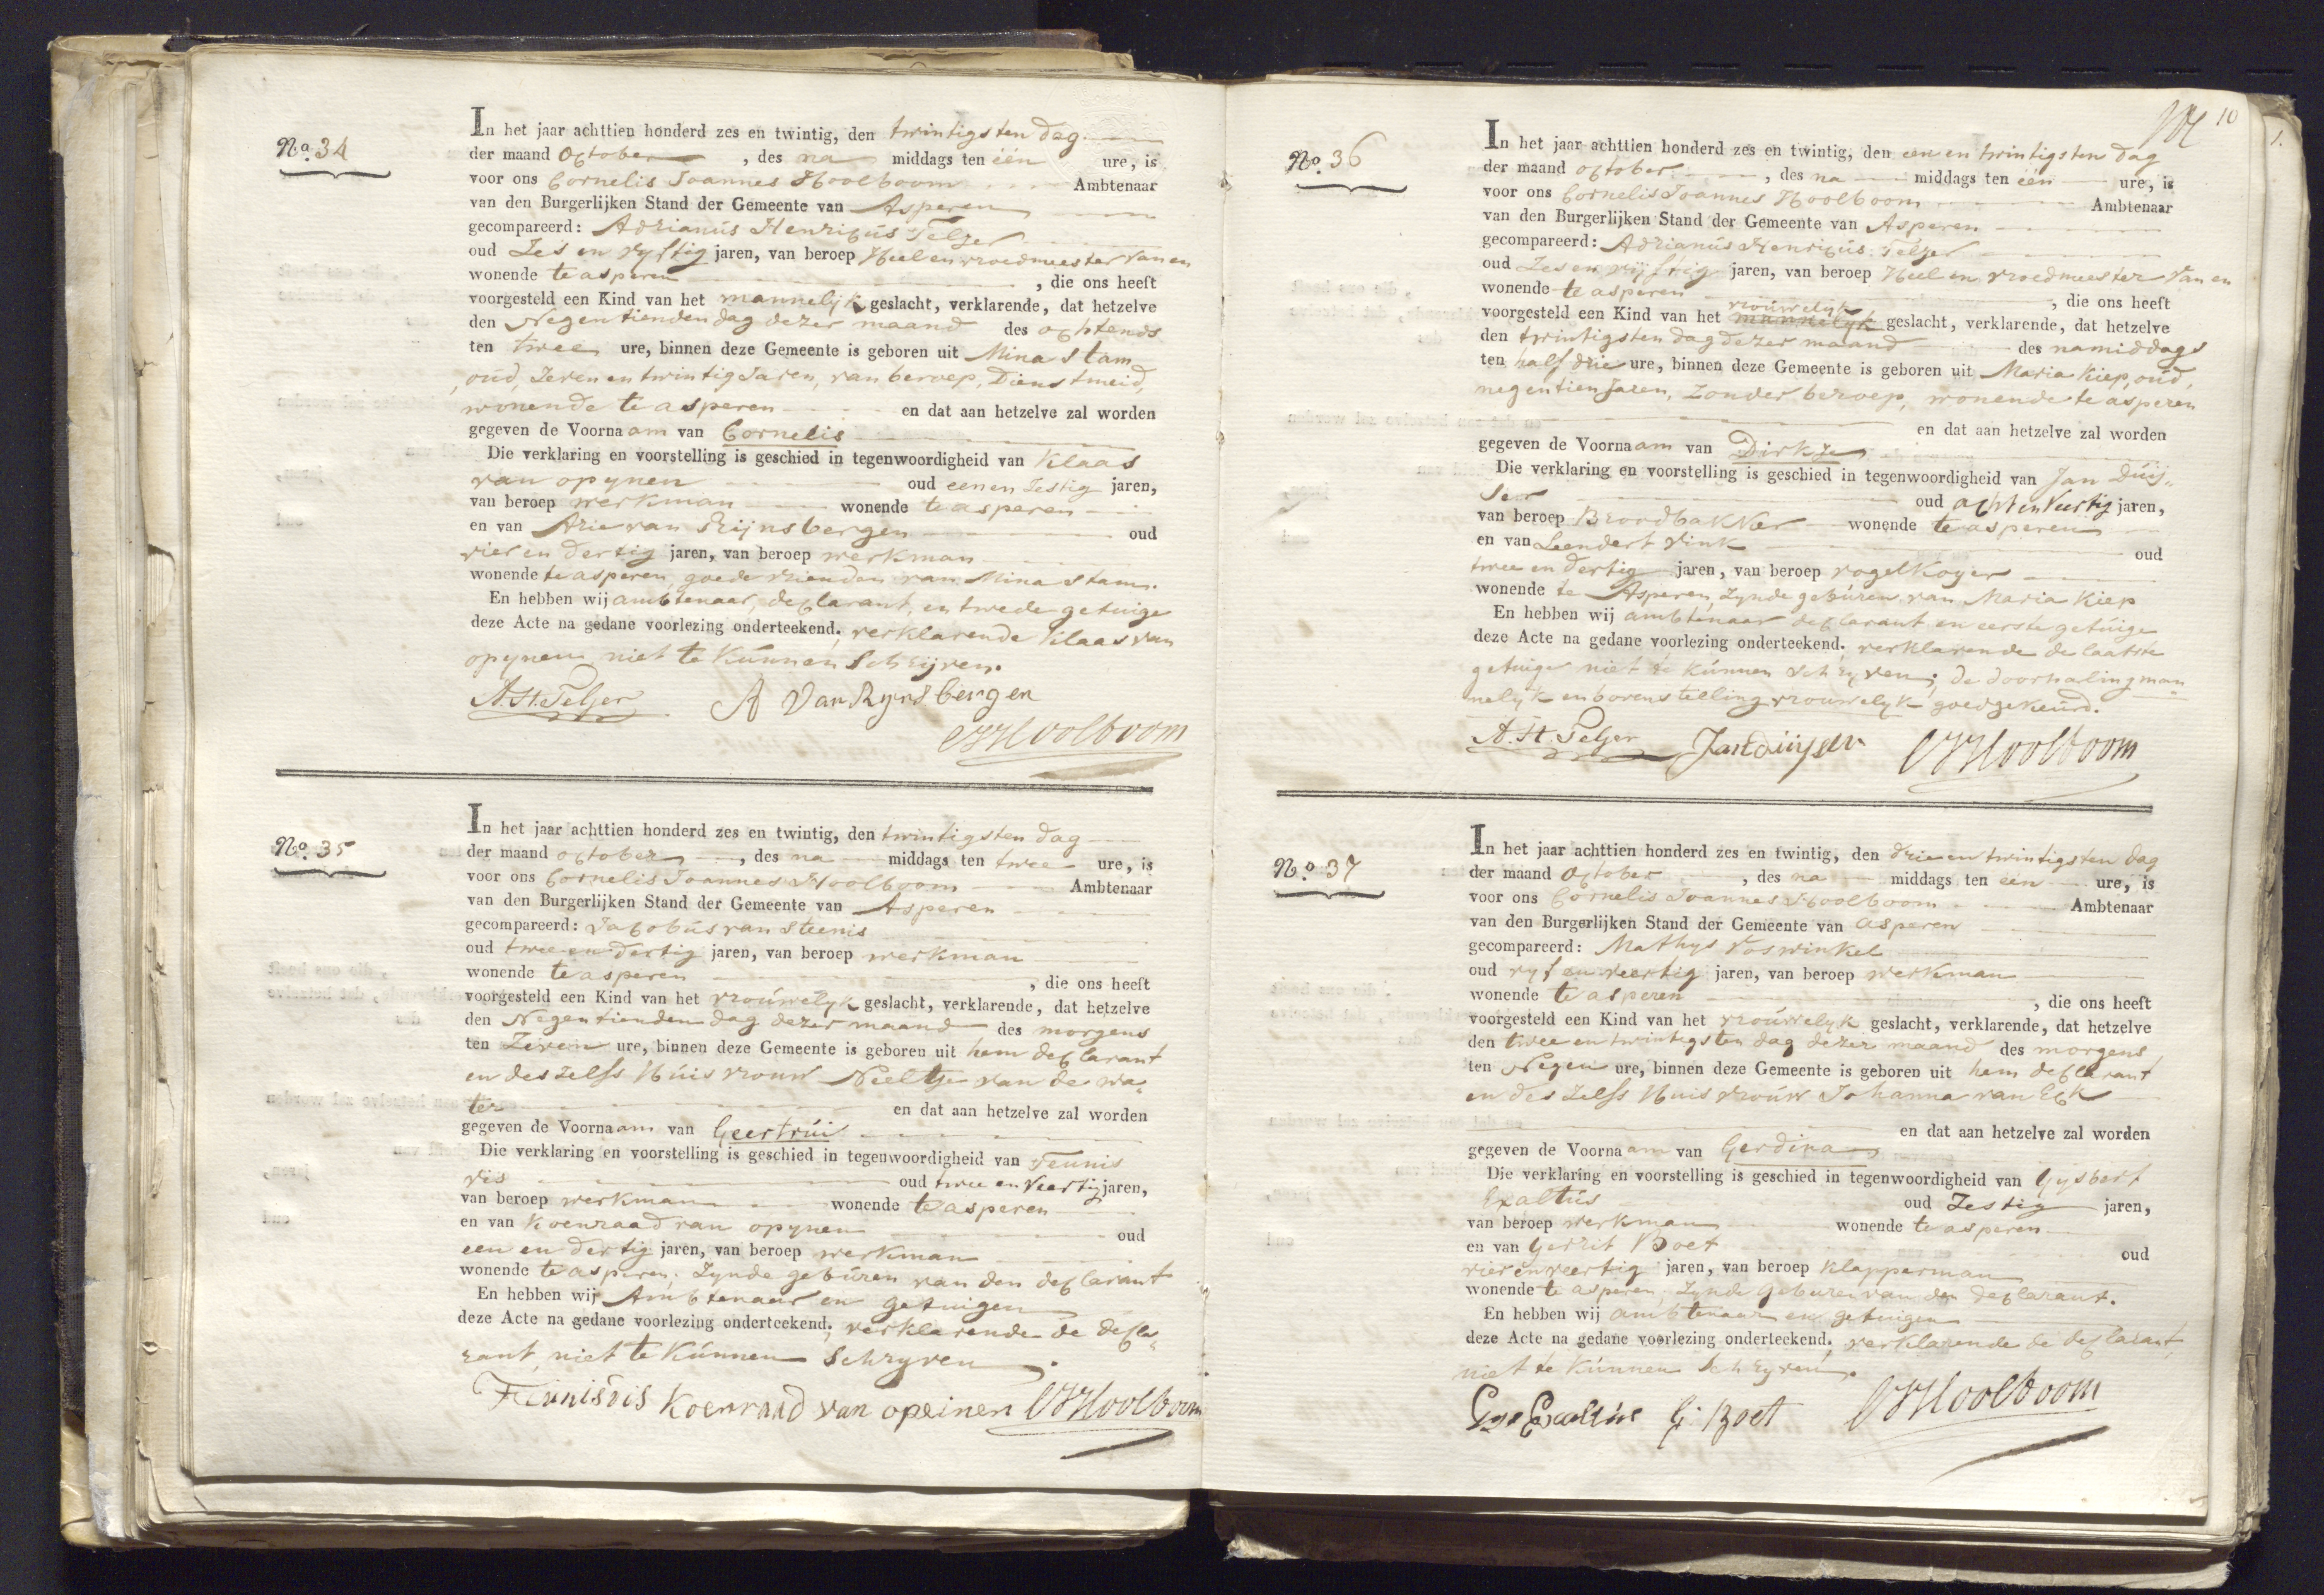 No. 34
In het jaar achttien honderd zes en twintig, den twintigsten dag
der maand October, des na middags ten één ure, is
voor ons Cornelis Joannes Hoolboom Ambtenaar
van den Burgerlijken Stand der Gemeente van Asperen
gecompareerd: Adrianus Henricus Telzer
oud Zes en vyftig jaren, van beroep Heel en vroedmeester van en
wonende te asperen, die ons heeft
voorgesteld een Kind van het mannelyk geslacht, verklarende, dat hetzelve
den Negentienden dag dezer maand des ochtends
ten twee ure, binnen deze Gemeente is geboren uit Mina Stam
, oud, Zeven en twintig Jaren, van beroep, Dienstmeid,
wonende te asperen en dat aan hetzelve zal worden
gegeven de Voornaam van Cornelis
Die verklaring en voorstelling is geschied in tegenwoordigheid van Klaas
van opynen oud een en Zestig jaren,
van beroep werkman wonende te asperen
en van Arie van Rijnsbergen oud
vier en dertig jaren, van beroep werkman
wonende te asperen, goede vrienden van Mina Stam.
En hebben wij ambtenaar, declarant, en twede getuige
deze Acte na gedane voorlezing onderteekend; verklarende Klaas van
opynen niet te kunnen schrijven.
A. H. Telzer A Van Rynsbergen
CJHoolboom
No. 35
In het jaar achttien honderd zes en twintig, den twintigsten dag
der maand october, des na middags ten twee ure, is
voor ons Cornelis Joannes Hoolboom Ambtenaar
van den Burgerlijken Stand der Gemeente van Asperen
gecompareerd: Jacobus van Steenis
oud twee en dertig jaren, van beroep werkman
wonende te asperen, die ons heeft
voorgesteld een Kind van het vrouwelyk geslacht, verklarende, dat hetzelve
den Negentienden dag dezer maand des morgens
ten Zeven ure, binnen deze Gemeente is geboren uit hem declarant
en deszelfs Huisvrouw Neeltje van de wa=
ter en dat aan hetzelve zal worden
gegeven de Voornaam van Geertrui
Die verklaring en voorstelling is geschied in tegenwoordigheid van Teunis
vis oud twee en Veertig jaren,
van beroep werkman wonende te asperen
en van Koenraad van opynen oud
een en dertig jaren, van beroep werkman
wonende te asperen, Zynde geburen van den declarant
En hebben wij Ambtenaar en getuigen
deze Acte na gedane voorlezing onderteekend; verklarende de decla=
rant, niet te kunnen schryven.
Teunis vis Koenraad van opeinen CJHoolboom
10
No. 36
In het jaar achttien honderd zes en twintig, den een en twintigsten dag
der maand october, des na middags ten één ure, is
voor ons Cornelis Joannes Hoolboom Ambtenaar
van den Burgerlijken Stand der Gemeente van Asperen
gecompareerd: Adrianus Henricus Telzer
oud Zes en vijftig jaren, van beroep Heel en vroedmeester van en
wonende te asperen, die ons heeft
vrouwelyk
voorgesteld een Kind van het mannelyk geslacht, verklarende, dat hetzelve
den twintigsten dag dezer maand des namiddags
ten half drie ure, binnen deze Gemeente is geboren uit Maria Kiep, oud,
negentien Jaren, Zonder beroep, wonende te asperen
en dat aan hetzelve zal worden
gegeven de Voornaam van Dirkje
Die verklaring en voorstelling is geschied in tegenwoordigheid van Jan Duij=
ser oud acht en Veertig jaren,
van beroep Broodbakker wonende te asperen
en van Leendert Vink oud
twee en dertig jaren, van beroep vogelkoyer
wonende te Asperen, Zynde geburen van Maria Kiep
En hebben wij ambtenaar declarant en eerste getuige
deze Acte na gedane voorlezing onderteekend; verklarende de laatste
getuige niet te kunnen schryven; de doorhaling man
nelyk en bovenstelling vrouwelyk goedgekeurd.
A. H. Telzer Jan duijser CJHoolboom
No. 37
In het jaar achttien honderd zes en twintig, den drie en twintigsten dag
der maand October, des na middags ten één ure, is
voor ons Cornelis Joannes Hoolboom Ambtenaar
van den Burgerlijken Stand der Gemeente van asperen
gecompareerd: Mathys Voswinkel
oud vyf en veertig jaren, van beroep werkman
wonende te asperen, die ons heeft
voorgesteld een Kind van het vrouwelyk geslacht, verklarende, dat hetzelve
den twee en twintigsten dag dezer maand des morgens
ten Negen ure, binnen deze Gemeente is geboren uit hem declarant
en des Zelfs Huisvrouw Johanna van Eck
en dat aan hetzelve zal worden
gegeven de Voornaam van Gerdina
Die verklaring en voorstelling is geschied in tegenwoordigheid van Gysbert
Exaltus oud Zestig jaren,
van beroep werkman wonende te asperen
en van Gerrit Boet oud
vier en veertig jaren, van beroep Klapperman
wonende te asperen, Zynde geburen van den declarant.
En hebben wij ambtenaar en getuigen
deze Acte na gedane voorlezing onderteekend; verklarende de declarant,
niet te kunnen schryven.
Exaltus G. Boet CJHoolboom